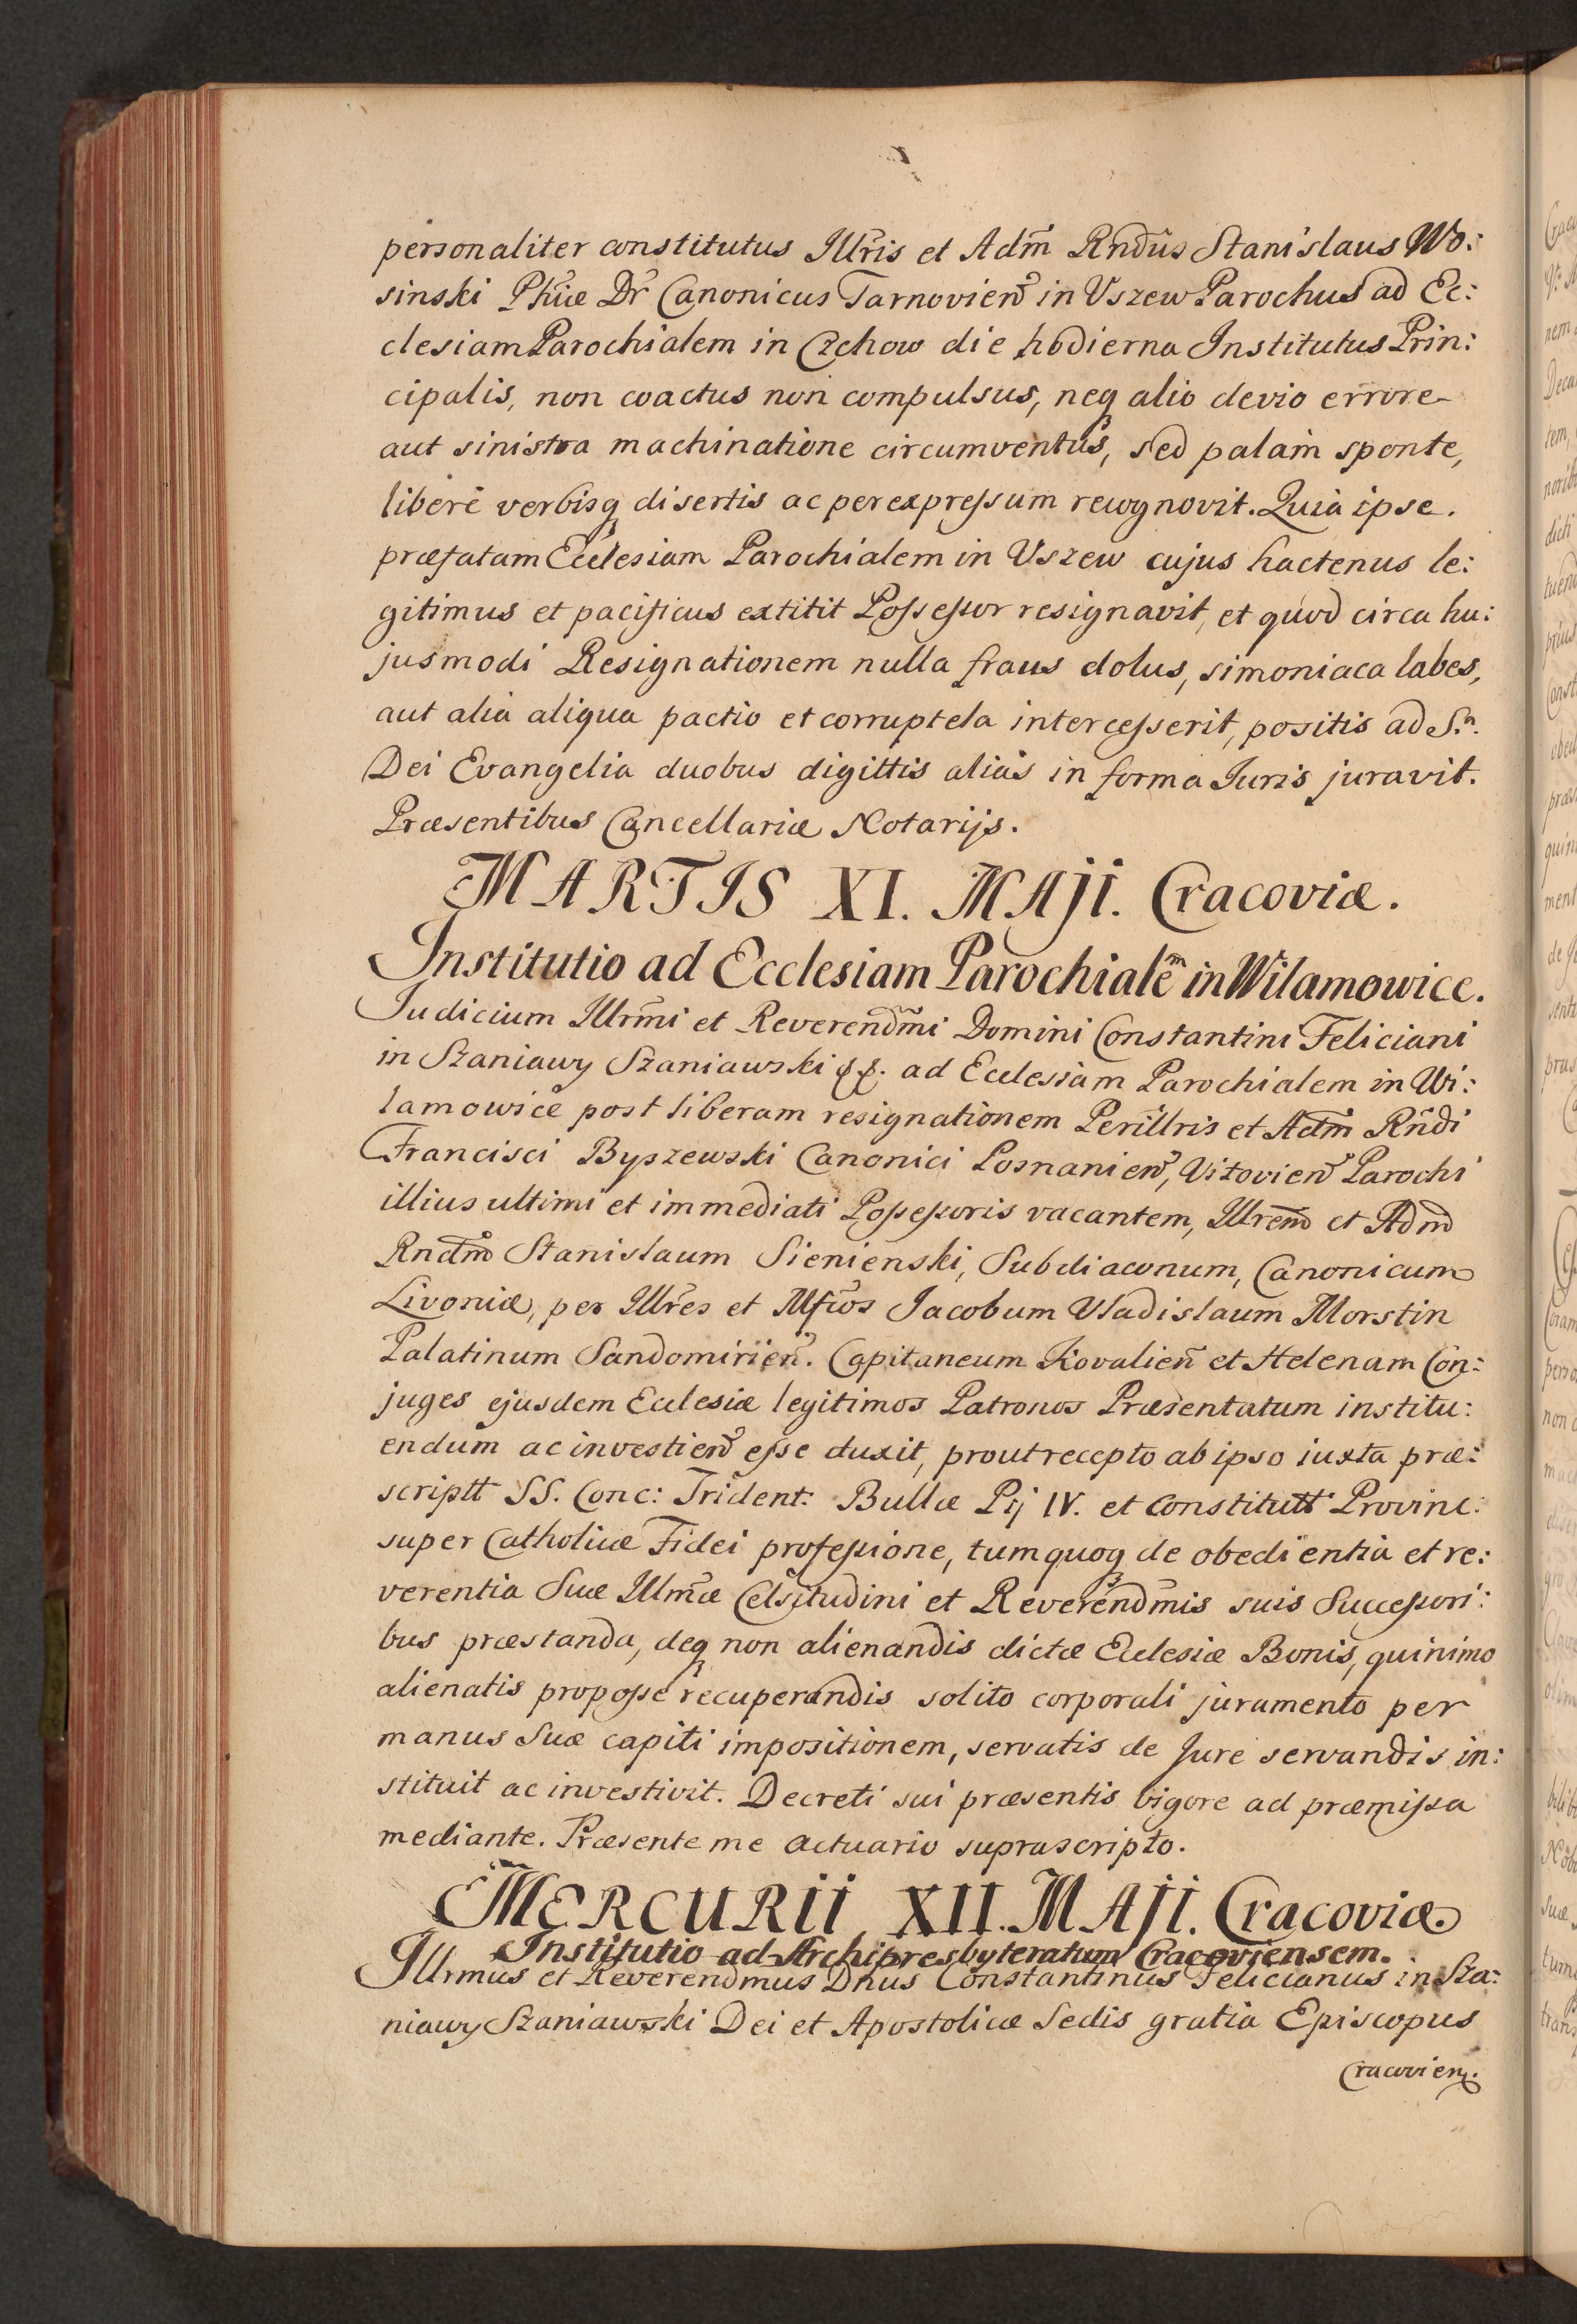 personaliter constitutus Illr̃is et Adm̃ Rnd̃us Stanislaus Wo:
sinski Phĩæ Dr̃ Canonicus Tarnovien̄ in Uszew Parochus ad Ec:
clesiam Parochialem in Czchow die hodierna Institutus Prin:
cipalis, non coactus non compulsus, neq₃ alio devio errore
aut sinistra machinatione circumventus, sed palam sponte,
liberè verbisq₃ disertis ac per expreſsum recognovit. Quia ipse.
præfatam Ecclesiam Parochialem in Uszew cujus hactenus le:
gitimus et pacificus extitit Poſseſsor resignavit, et quod circa hu:
jusmodi Resignationem nulla fraus dolus, simoniaca labes,
aut alia aliqua pactio et corruptela interceſserit, positis ad S.ª
Dei Evangelia duobus digittis alias in forma Juris juravit.
Præsentibus Cancellariæ Notarijs.
MARTIS XI. MAji. Cracoviæ.
Institutio ad Ecclesiam Parochialẽᵐ in Wilamowice.
Judicium Illrm̃i et Reverendm̃i Domini Constantini Feliciani
in Szaniawy Szaniawski &&. ad Ecclesiam Parochialem in Wi:
lamowice post liberam resignationem Perillr̃is et Adm̃ Rñdi
Francisci Byszewski Canonici Posnanien̄, Vitovien̄ Parochi
illius ultimi et immediati Poſseſsoris vacantem, Illrem̃ et Adm̃
Rndm̃ Stanislaum Sienienski, Subdiaconum, Canonicum
Livoniæ, per Illr̃es et Mfc̃os Jacobum Vladislaum Morstin
Palatinum Sandomirien̄. Capitaneum Kovalien̄ et Helenam Con:
juges ejusdem Ecclesiæ legitimos Patronos Præsentatum institu:
endum ac investien̄d eſse duxit, prout recepto ab ipso iuxta præ:
scriptt SS. Conc: Trident: Bullæ Pij IV. et Constitutt Provinc:
super Catholicæ Fidei profeſsione, tum quoq₃ de obedientia et re:
verentia Suæ Illm̃æ Celsitudini et Reverendm̃is suis Succeſsori:
bus præstanda, deq₃ non alienandis dictæ Ecclesiæ Bonis, quinimo
alienatis pro poſse recuperandis solito corporali juramento per
manus Suæ capiti impositionem, servatis de Jure servandis in:
stituit ac investivit. Decreti sui præsentis vigore ad præmiſsa
mediante. Præsente me Actuario suprascripto.
MERCURii XII. MAji. Cracoviæ
Institutio ad Archipresbyteratum Cracoviensem.
Illrmus et Reverendmus Dnus Constantinus Felicianus in Sza:
niawy Szaniawski Dei et Apostolicæ Sedis gratia Episcopus
Cracovien̄.